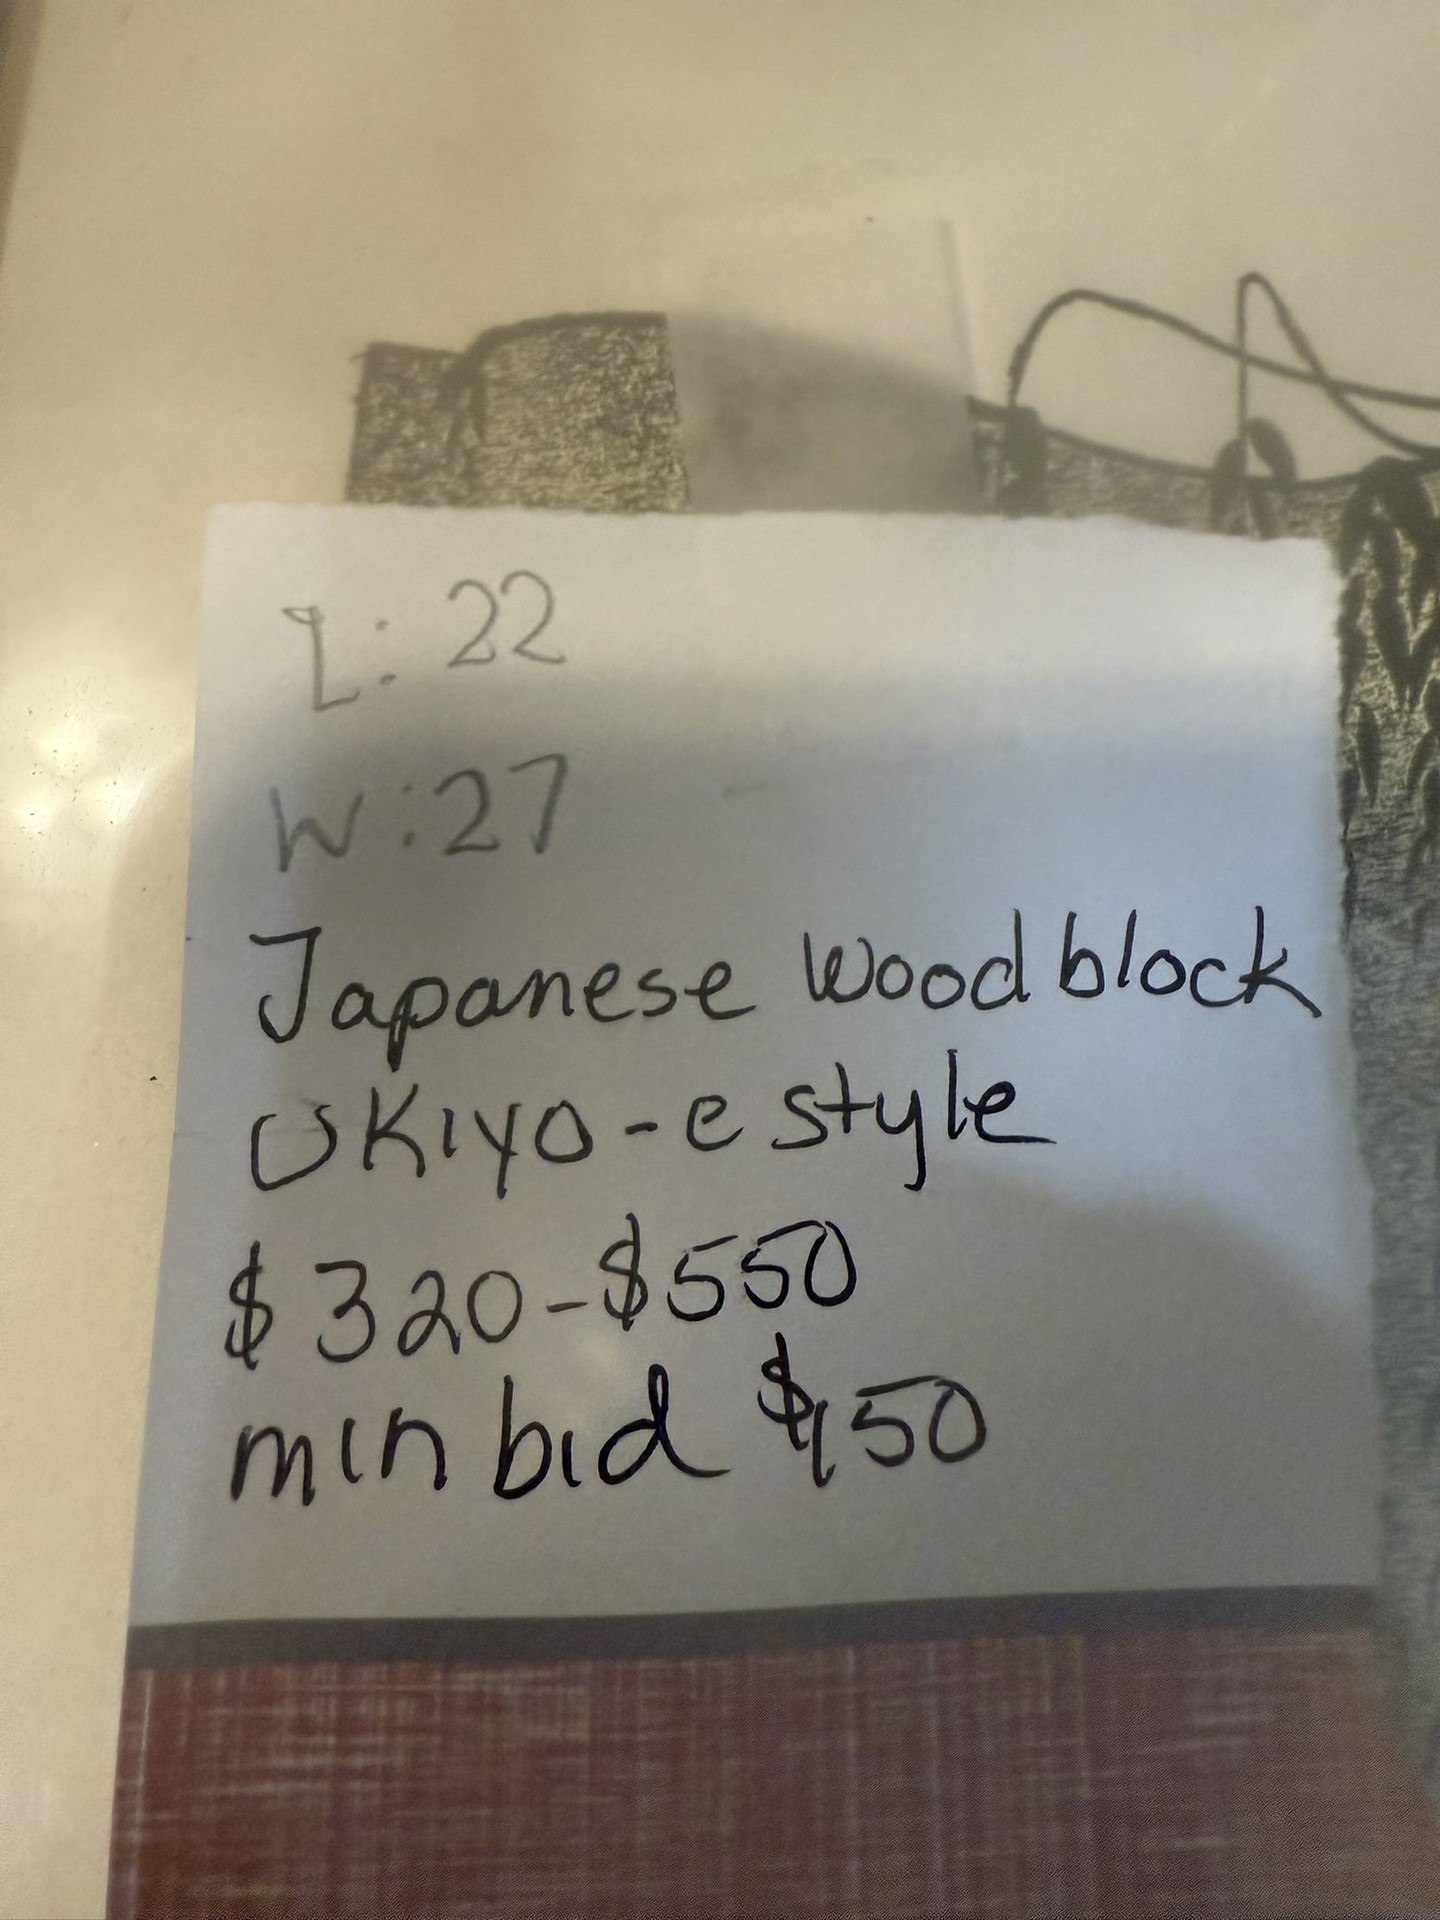 L: 22
W: 27
Japanese Woodblock
UKIYO-e style
$320-$550
min bid $150